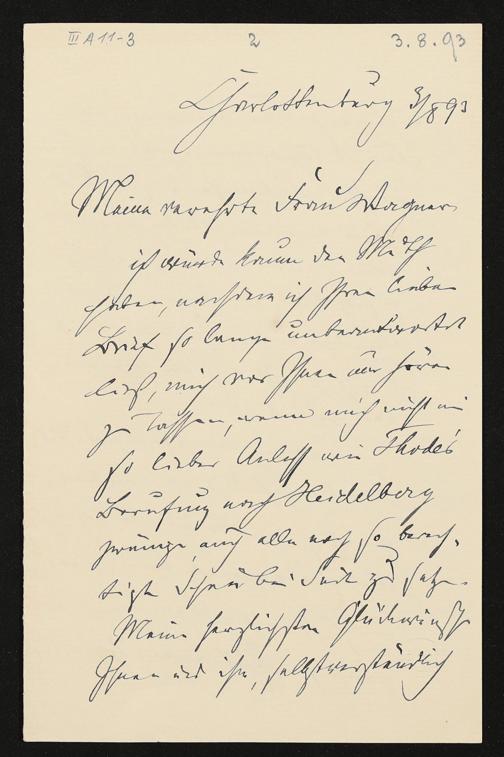 III A 11-3 2 3.8.93
Charlottenburg 3/8 93
Meine verehrte Frau Wagner
ich würde kaum den Muth
haben, nachdem ich Ihren lieben
Brief so lange unbeantwortet
ließ, mich vor Ihnen hören
zu lassen, wenn mich nicht ein
so lieber Anlaß wie Thode's
Berufung nach Heidelberg
zwänge, auch alle noch so berech-
tigte Scheu bei Seite zu setzen.
Meine herzlichsten Glückwünsche
Ihnen und ihm, selbstverständlich